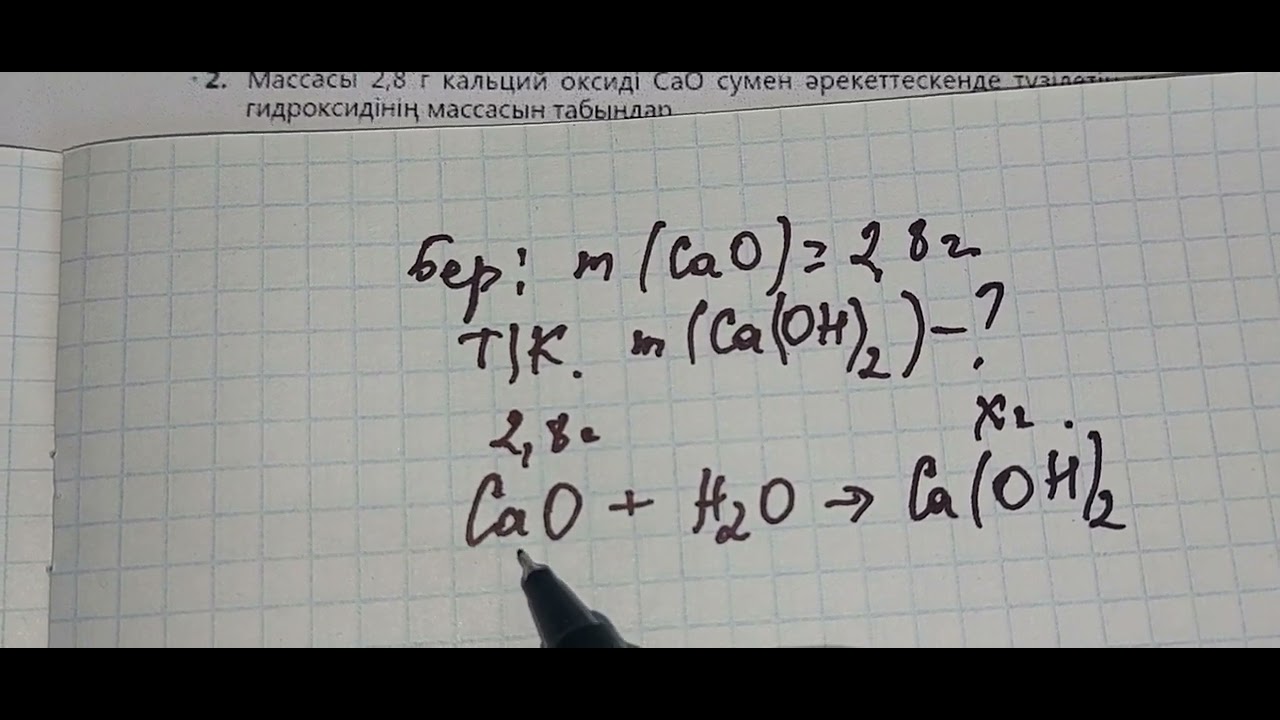 2. Массасы 2,8 г кальций оксиді CaO сумен әрекеттескенде түзілетін
гидроксидінің массасын табыңдар
Бер: m (CaO) = 2,8 г
Т/К. m (Ca(OH)2) - ?
2,8 г x г.
CaO + H2O → Ca(OH)2